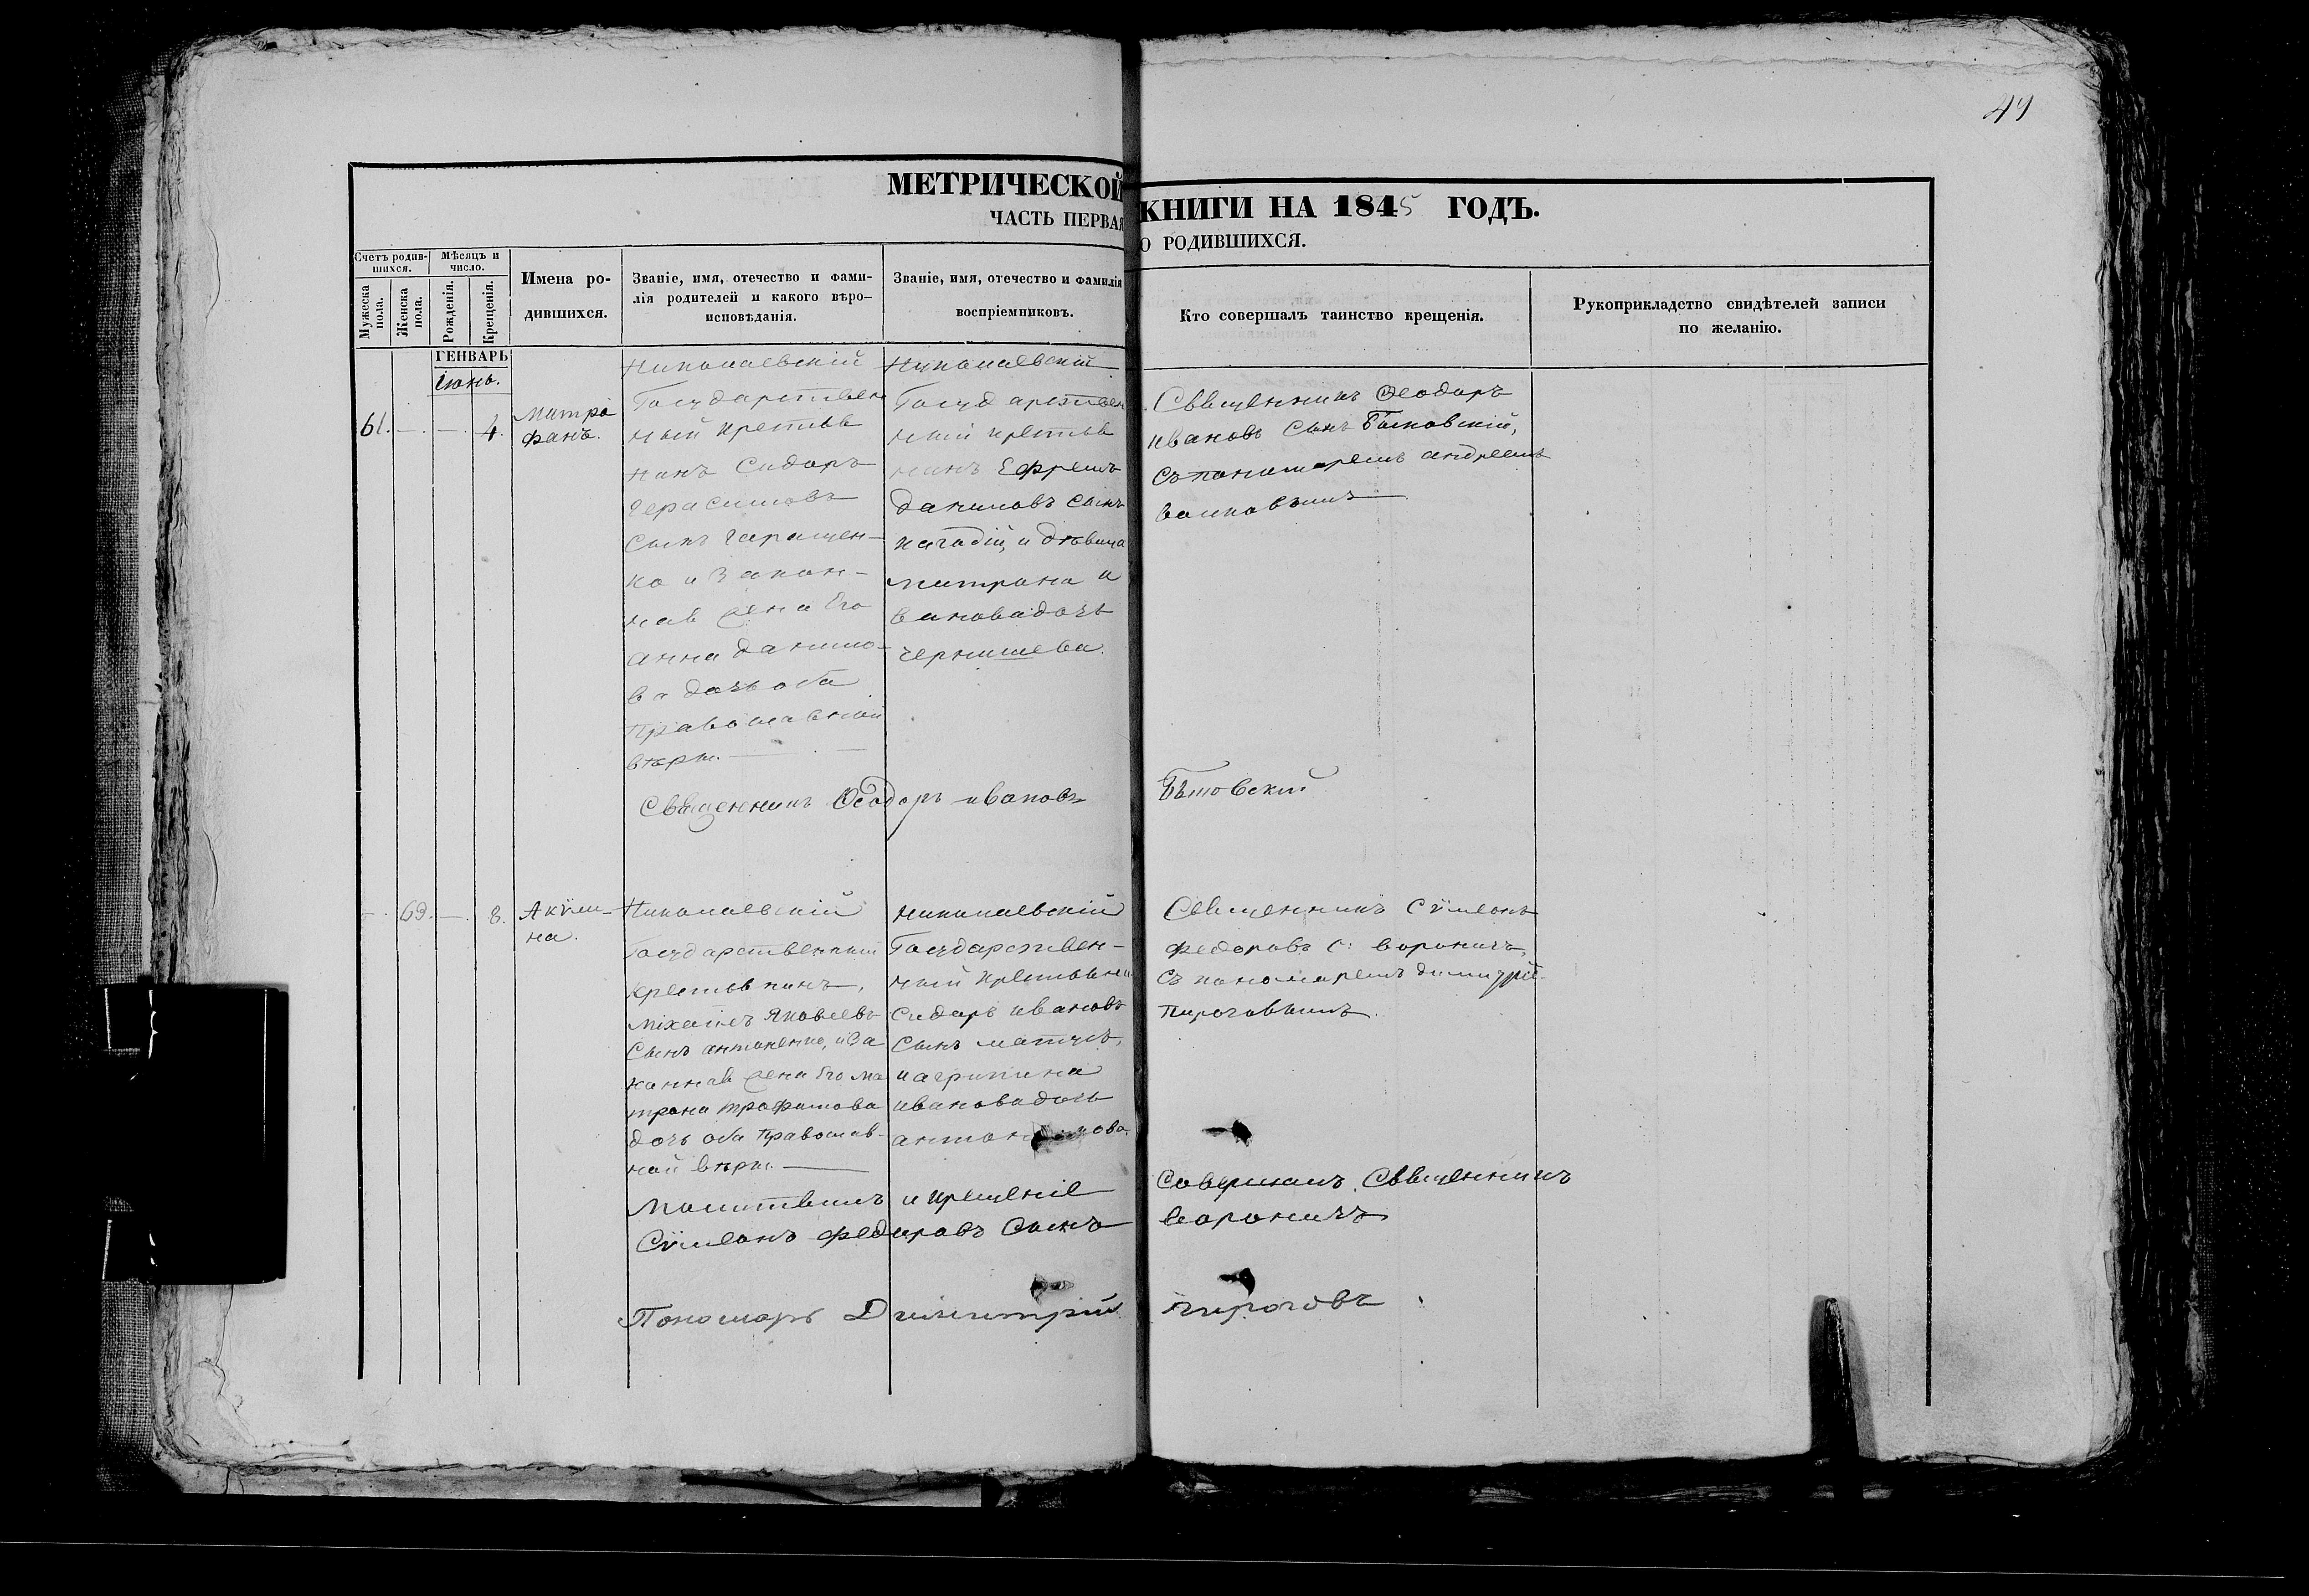 49
МЕТРИЧЕСКОЙ КНИГИ НА 1845 ГОДЪ.
ЧАСТЬ ПЕРВАЯ О РОДИВШИХСЯ.
Счетъ родив-
шихся.
Мужеска пола.
Женска пола.
Мѣсяцъ и
число.
Рожденія.
Крещенія.
Имена ро-
дившихся.
Званіе, имя, отечество и фами-
лія родителей и какого вѣро-
исповѣданія.
Званіе, имя, отечество и фамилія
воспріемниковъ.
Кто совершалъ таинство крещенія.
Рукоприкладство свидѣтелей записи
по желанію.
ГЕНВАРЬ
Июнь.
61. — — 4.
Митро
фанъ.
Николаевскій
Государствен
ный крестья
нинъ Сидоръ
Герасимовъ
Сынъ Геращен-
ко и Закон-
ная жена его
Анна Данило-
ва дочь оба
Православной
вѣры.
Николаевскій
Государствен
ный крестья
нинъ Ефремъ
Даниловъ Сынъ
и дѣвица
Матрона И
ванова дочь
Чернишева.
Священникъ Ѳеодоръ
Ивановъ Сынъ
Съ пономаремъ Андреемъ
Волковымъ
Священникъ Ѳеодоръ Ивановъ
— 69. — 8.
Акѵли-
на.
Николаевскій
Государственный
крестьянинъ,
Міхаилъ Яковлевъ
Сынъ Антоненко, и За
конная жена его Ма
трона Трофимова
дочь оба Православ-
ной вѣры.
Николаевскій
Государствен-
ный крестьянин
Сидоръ Ивановъ
Сынъ
и Агрипина
Иванова дочь
Священникъ Сѵмеонъ
Федоровъ С: Вороничъ,
Съ пономаремъ Димитріе-
Пироговымъ.
Молитвилъ и крещеніе Совершалъ Священникъ
Сѵмеонъ Федоровъ Сынъ Вороничъ
Пономарь Димитрій Пироговъ